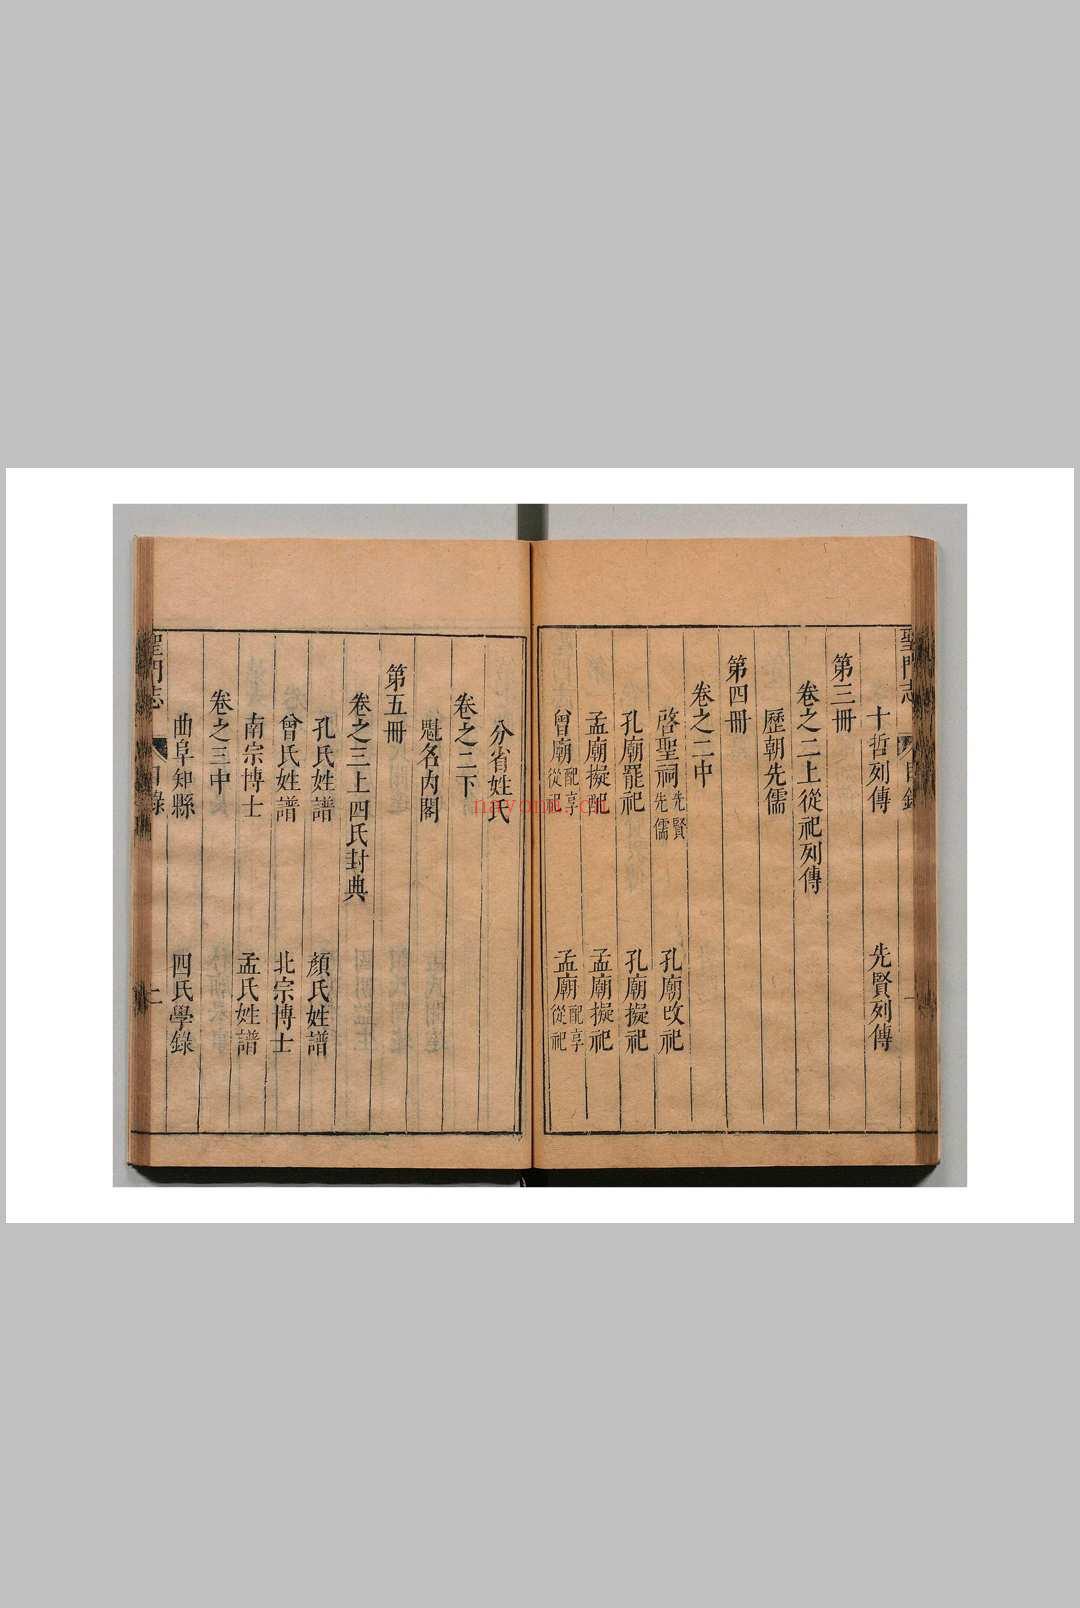 聖門志 目錄
十哲列傳 先賢列傳
第三冊
卷之二上從祀列傳
歷朝先儒
第四冊
卷之二中
啓聖祠先賢先儒 孔廟改祀
孔廟罷祀 孔廟擬祀
孟廟擬配 孟廟擬祀
曾廟配享從祀 孟廟配享從祀
分省姓氏
卷之二下
各內閣
第五冊
卷之三上四氏封典
孔氏姓譜 顏氏姓譜
曾氏姓譜 北宗博士
南宗博士 孟氏姓譜
卷之三中
曲阜知縣 四氏學錄
聖門志 目錄 二
nayona.cn